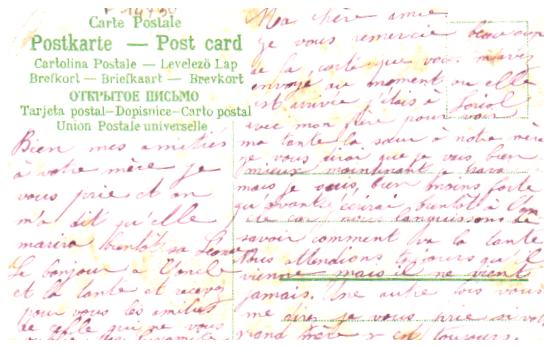 Carte Postale
Postkarte — Post card
Cartolina Postale — Levelező Lap
Brefkort — Briefkaart — Brevkort
ОТКРЫТОЕ ПИСЬМО
Tarjeta postal—Dopisnice—Carto postal
Union Postale universelle
Ma chère amie
je vous remercie beaucoup
de la carte que vous m'avez
envoyé au moment ou elle
est arrivée j'étais à Loriol
avec mon père pour voir
ma tante la sœur à notre mère
je vous dirai que je vais bien
mieux maintenant je
mais je suis bien moins forte
qu'avant bientôt à
car nous languissons de
savoir comment va la tante
Nous attendions toujours qu'il
vienne mais il ne vient
jamais. Une autre fois vous
me direz je vous prie si vot
grand père toujours
Bien mes amitiés
à votre mère je
vous prie et on
m'a dit qu'elle
marira bientôt sa
Le bonjour à l'oncle
et la tante et recevez
pour vous les amitiés
de celle qui ne vous
oublie